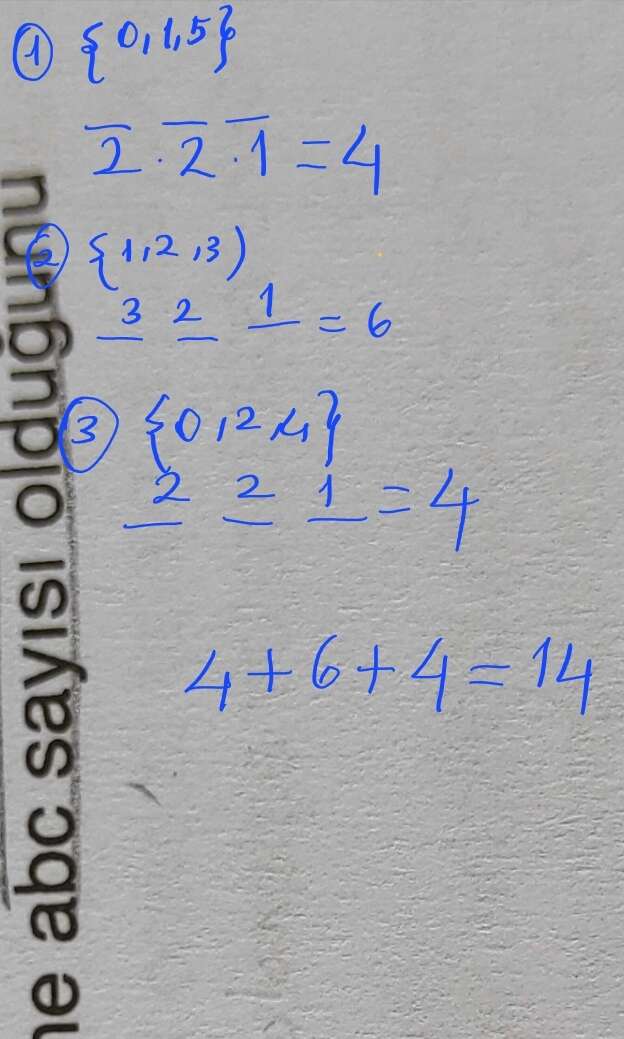 ① {0,1,5}
2.2.1=4
② {1,2,3)
3 2 1 = 6
③ {0,2,4}
2 2 1 = 4
4+6+4=14
ne abc sayısı olduğunu